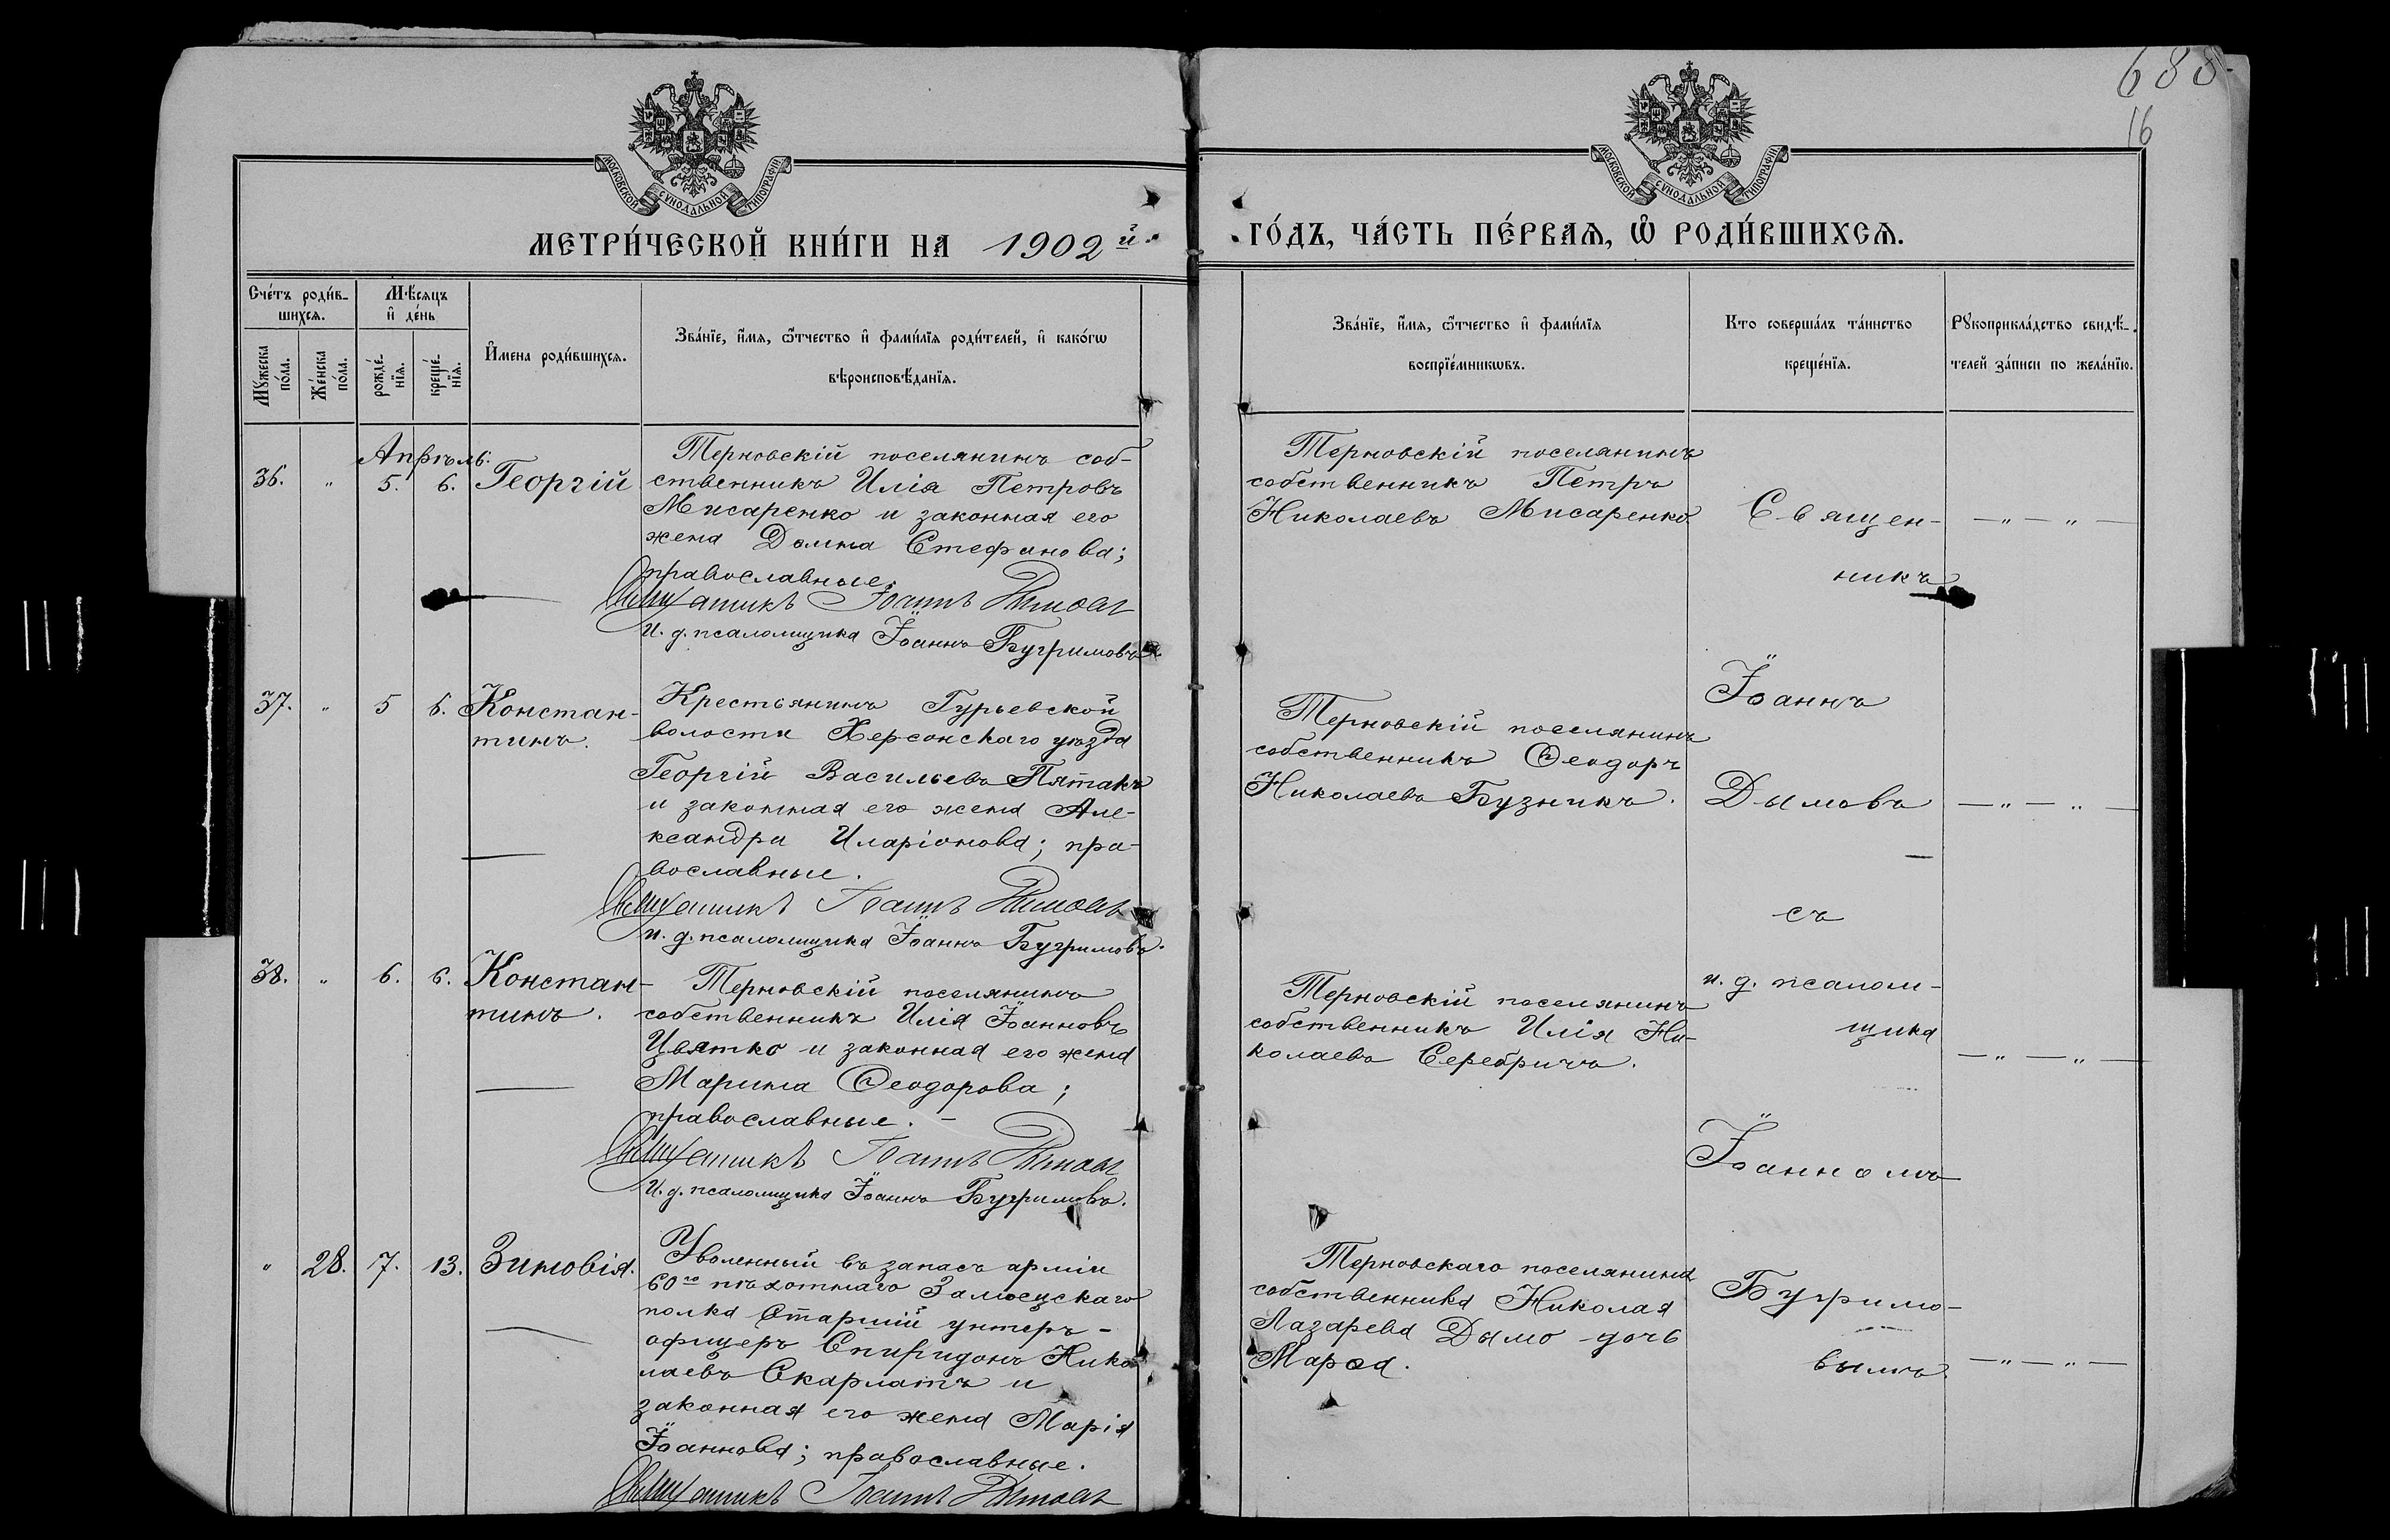 688
16
МОСКОВСКОЙ СУНОДАЛЬНОЙ ТИПОГРАФІИ
МОСКОВСКОЙ СУНОДАЛЬНОЙ ТИПОГРАФІИ
МЕТРИ́ЧЕСКОЙ КНИ́ГИ НА 1902й
ГО́ДЪ, ЧА́СТЬ ПЕ́РВАѦ, Ѡ҆ РОДИ́ВШИХСѦ.
Сче́тъ роди́в-
шихсѧ.
Мꙋ́жеска
по́ла.
Же́нска
по́ла.
Мѣ́сѧцъ
и҆ де́нь
рожде́-
нїѧ.
креще́-
нїѧ.
И҆мена роди́вшихсѧ.
Зва́нїе, и҆́мѧ, ѻ҆́тчество и҆ фами́лїѧ роди́телей, и҆ како́гѡ
вѣроисповѣ́данїѧ.
Зва́нїе, и҆́мѧ, ѻ҆́тчество и҆ фами́лїѧ
воспрїе́мникѡвъ.
Кто соверша́лъ та́инство
креще́нїѧ.
Рꙋкоприкла́дство свидѣ́-
телей за́писи по жела́нїю.
Апрѣль.
36. " 5. 6. Георгій
Терновскій поселянинъ соб-
ственникъ Илія Петровъ
Мисаренко и законная его
жена Домна Стефанова;
православные.
Священникъ Іоаннъ Дымовъ
И. д. псаломщика Іоаннъ Бугримовъ
Терновскій поселянинъ
собственникъ Петръ
Николаевъ Мисаренко.
Священ-
никъ
— " — " —
37. " 5 6. Констан-
тинъ.
Крестьянинъ Гурьевской
волости Херсонскаго уѣзда
Георгій Васильевъ Пятакъ
и законная его жена Але-
ксандра Иларіонова; пра-
вославные.
Священникъ Іоаннъ Дымовъ
и. д. псаломщика Іоаннъ Бугримовъ.
Терновскій поселянинъ
собственникъ Ѳеодоръ
Николаевъ Бузникъ.
Іоаннъ
Дымовъ
— " — " —
съ
38. " 6. 6. Констан-
тинъ.
Терновскій поселянинъ
собственникъ Илія Іоанновъ
Цвятко и законная его жена
Марина Ѳеодорова;
православные. —
Священникъ Іоаннъ Дымовъ
И. д. псаломщика Іоаннъ Бугримовъ.
Терновскій поселянинъ
собственникъ Илія Ни-
колаевъ Серебричъ.
и. д. псалом-
щика
— " — " —
Іоанномъ
" 28. 7. 13. Зиновія.
Уволенный въ запасъ арміи
60го пѣхотнаго Замосцскаго
полка Старшій унтеръ-
офицеръ Спиридонъ Нико-
лаевъ Скарлатъ и
законная его жена Марія
Іоаннова; православные.
Священникъ Іоаннъ Дымовъ
Терновскаго поселянина
собственника Николая
Лазарева Дымо дочь
Бугримо-
вымъ.
— " — " —